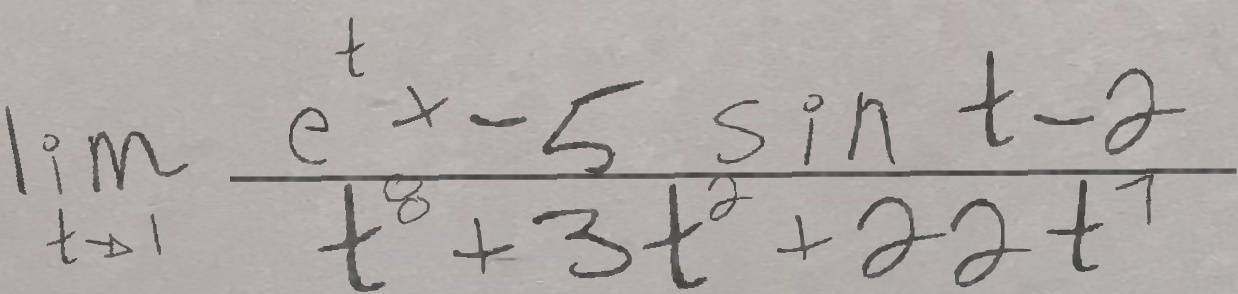 \lim_{t \to 1} \frac{e^{t} x - 5 \sin t - 2}{t^{8} + 3t^{2} + 22t^{7}}